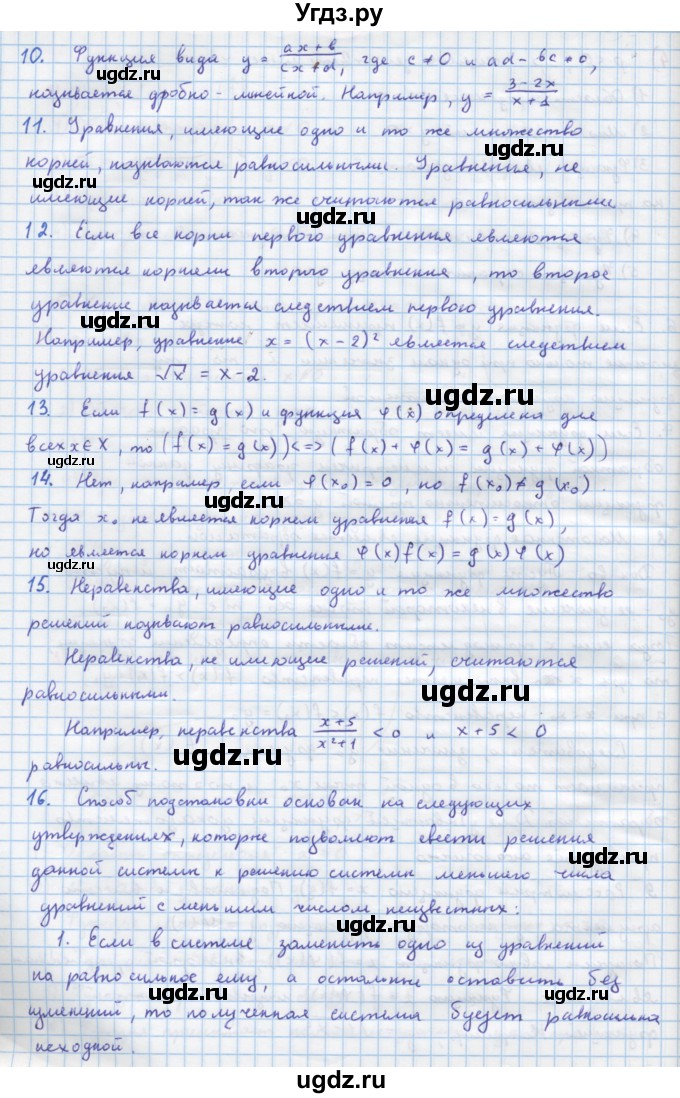 Угдз.ру
10. Функция вида y = (ax+b)/(cx+d), где c ≠ 0 и ad - bc ≠ 0,
называется дробно-линейной. Например, y = (3-2x)/(x+1)
11. Уравнения, имеющие одно и то же множество
корней, называются равносильными. Уравнения, не
имеющие корней, так же считаются равносильными
12. Если все корни первого уравнения являются
являются корнями второго уравнения, то второе
уравнение называется следствием первого уравнения.
Например, уравнение x = (x-2)² является следствием
уравнения √x = x-2.
13. Если f(x) = g(x) и функция φ(x) определена для
всех x∈X, то (f(x) = g(x)) <=> (f(x) + φ(x) = g(x) + φ(x))
14. Нет, например, если φ(x₀) = 0, но f(x₀) ≠ g(x₀).
Тогда x₀ не является корнем уравнения f(x) = g(x),
но является корнем уравнения φ(x)f(x) = g(x)φ(x)
15. Неравенства, имеющие одно и то же множество
решений называют равносильными.
Неравенства, не имеющие решений, считаются
равносильными.
Например, неравенства (x+5)/(x²+1) < 0 и x+5 < 0
равносильны.
16. Способ подстановки основан на следующих
утверждениях, которые позволяют свести решения
данной системы к решению системы меньшего числа
уравнений с меньшим числом неизвестных:
1. Если в системе заменить одно из уравнений
на равносильное ему, а остальные оставить без
изменений, то полученная система будет равносильна
исходной.
ugdz.ru
ugdz.ru
ugdz.ru
ugdz.ru
ugdz.ru
ugdz.ru
ugdz.ru
ugdz.ru
ugdz.ru
ugdz.ru
ugdz.ru
ugdz.ru
ugdz.ru
ugdz.ru